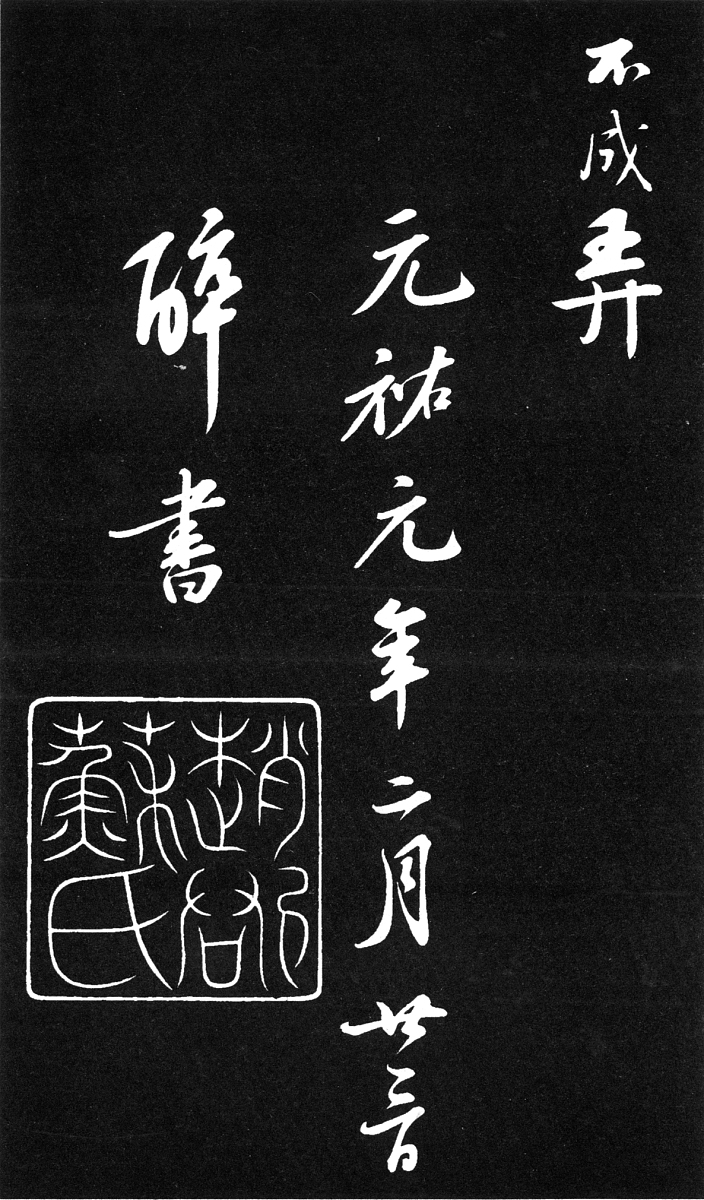 不成弄
元祐元年二月廿三日
醉書
趙郡
蘇氏